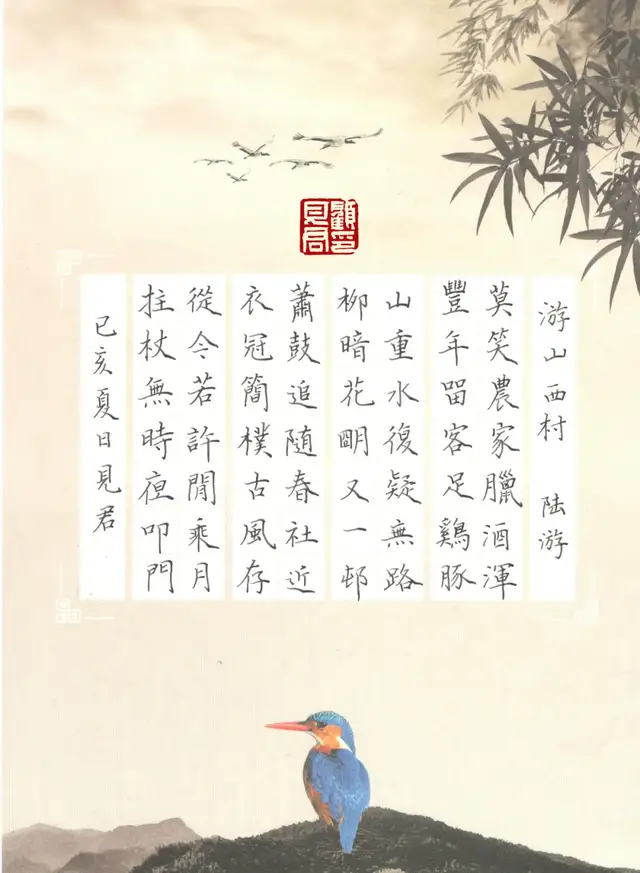 顧印見君
游山西村 陆游
莫笑農家臘酒渾
豐年留客足鷄豚
山重水復疑無路
柳暗花明又一邨
蕭鼓追随春社近
衣冠簡樸古風存
從今若許閒乘月
拄杖無時夜叩門
己亥夏日見君